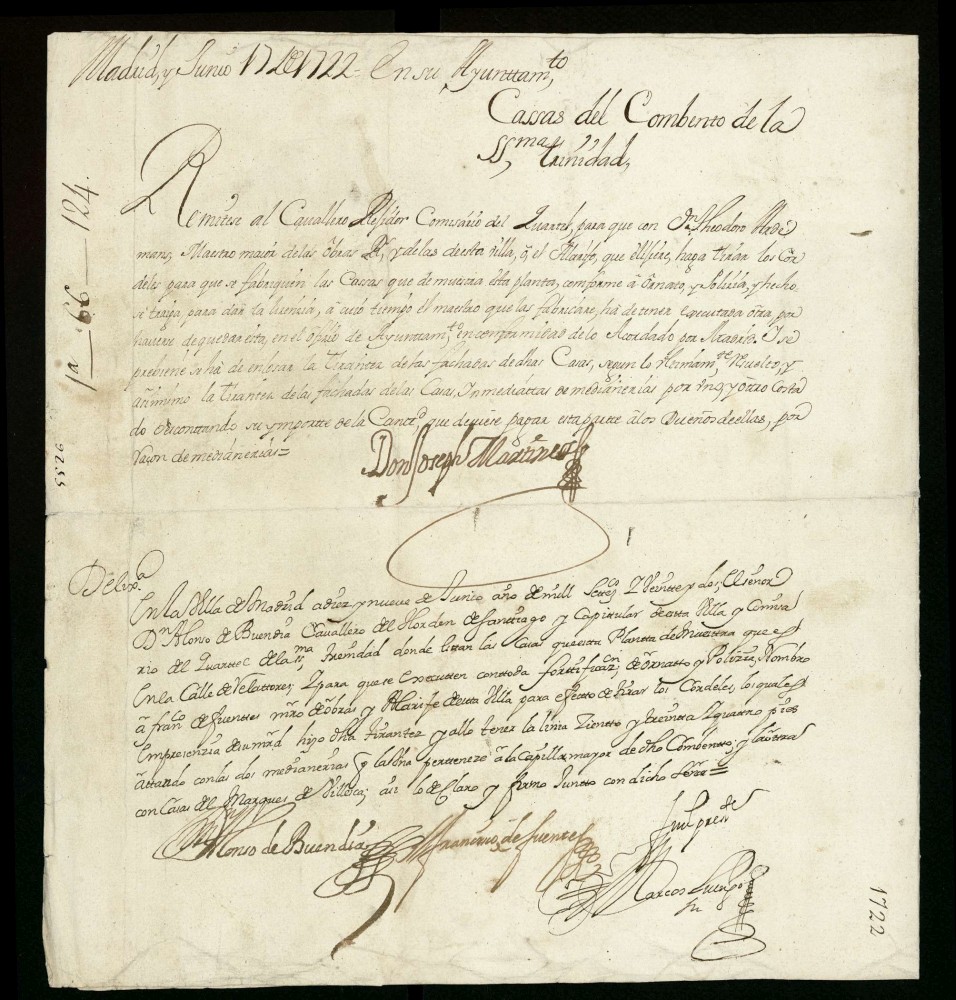 Madrid, y Junio 17 de 1722 = En su Ayunttam,to
Cassas del Combento de la
SSma, trinidad,
Remitese al Cavallero Rexidor Comisario del Quartel, para que con Dn. Theodoro Arde
mans, Maestro maior de las obras Rs, y de las de esta villa, ô, el Alarife, que elixiere, haga tirar los Cor
deles para que se fabriquen las Cassas que demuestra esta planta, conforme à ôrnato, y Polizia, y hecho
se traiga, para dar la lizenzia, à cuio tiempo el maestro que las fabricare, ha de tener executada otra, por
haverse de quedar esta, en el ofizio de Ayuntamto en conformidad de lo Acordado por Madrid. Y se
prebiene se hà de enlosar la tirantez de las fachadas de dhas Casas, segun lo Ultimamte resuelto, y
asimismo la tirantez de las fachadas de las Casas, Inmediattas de medianerias por uno y otro Costa
do descontando su ymporte de la Cantd, que deviere pagar esta parte à los Dueños de ellas, por
razon de medianerias =
Don Joseph Martinez
Delixa
En la Villa de Madrid a diez y nueve de Junio año de mill Settos Y Veintte y dos; El señor
Dn. Alonso de Buendia Cavallero del Horden de Santtiago y Capitular de esta Villa y Comisa
rio del Quarttel de la SSma trenidad donde esttan las Casas que esta Plantta demuestra que es
En la Calle de Relattores; Y para que se executten con toda forttificazn, de ôrnatto y Polizia, Nombro
â franco de fuentes mro de ôbras y Alarife de esta Villa para efecto de tirar los Cordeles, los quales
En presenzia de su mrd hizo dha tirantez y allo tener la linia Zientto y treintta y quattro pies
attando con las dos medianerias que la Una perttenece à la Capilla mayor de dho Combentto; y la ôttra
con Casas del Marques de Villoria; asi lo declaro y firmo Juntto con dicho señor =
Alonso de Buendia
Francisco de fuentes
fui presste
Marcos Luengo
1a — 66 — 124.
9255
1722